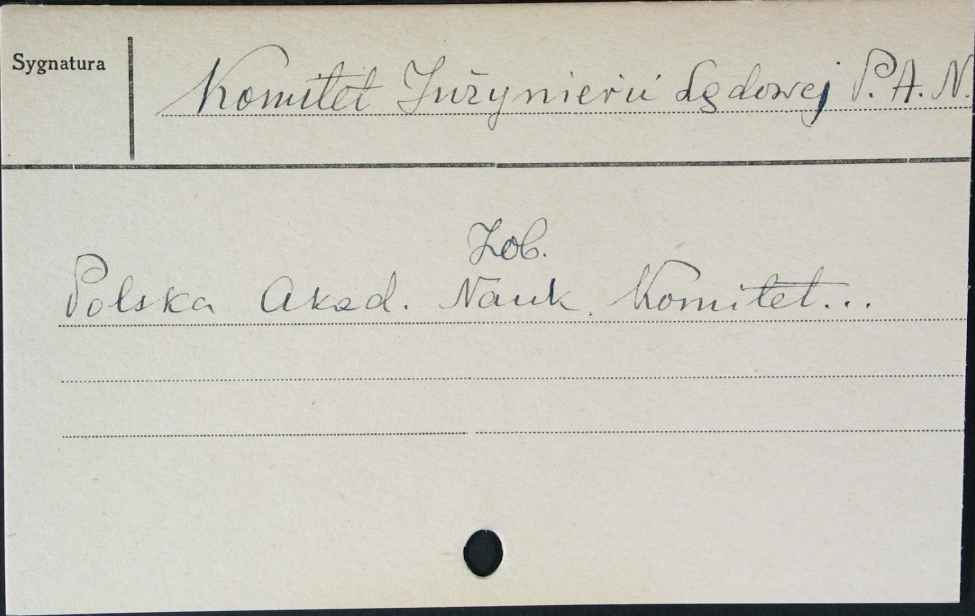 Sygnatura
Komitet Inżynierii Lądowej P.A.N.
Zob.
Polska Akad. Nauk. Komitet...